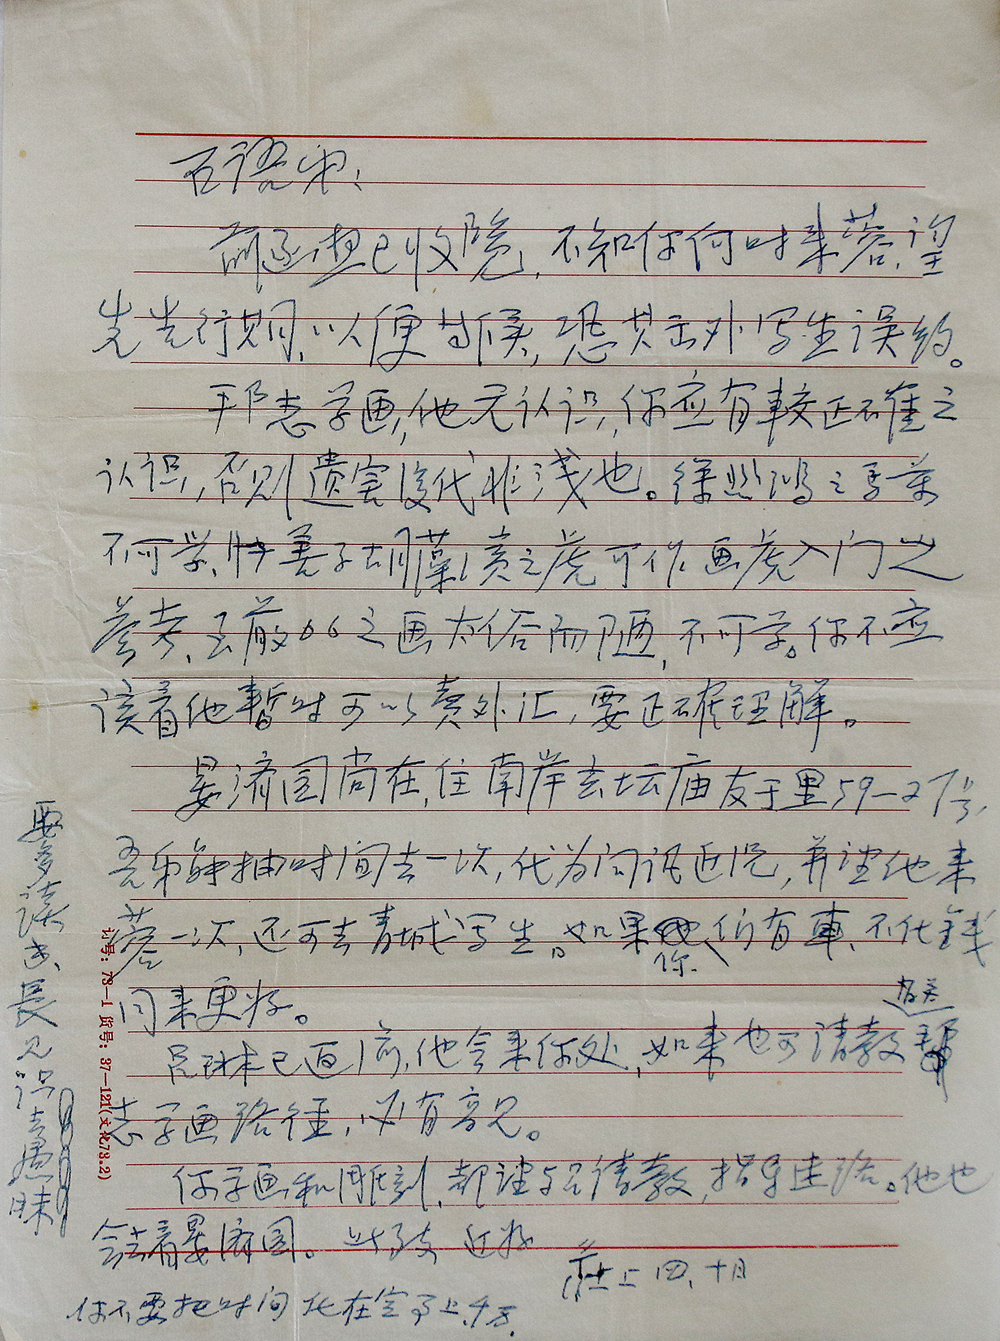 石语弟：
前函想已收览，不知你何时来蓉，望
先告行期，以便等候，恐其出外写生误约。
邦志学画，他无认识，你应有较正确之
认识，否则遗害後代非浅也。徐 鸿之
不可学，张善子胡藻 之虎可作画虎入门之
参考， 之画太俗而陋，不可学。你不应
该看他暂时可以卖外汇，要正确理解。
晏济园尚在，住南岸玄坛庙友于里59—27号，
吾弟能抽时间去一次，代为问讯近况，并望他来
蓉一次，还可去青城写生。如果你们有车，不化金钱
同来更好。
吕琳本已返 ，他会来你处，如来也可请教邦
志学画路径，必有高见。
你学画和雕刻，都望与吕请教，指导迷路。他也
会去看晏济园。此致 近好
 上 四、十日
你不要把时间花在 上，千万。
要多读书，長见识，去愚昧
讨号：73—1 货号：37—121(文化73.2)